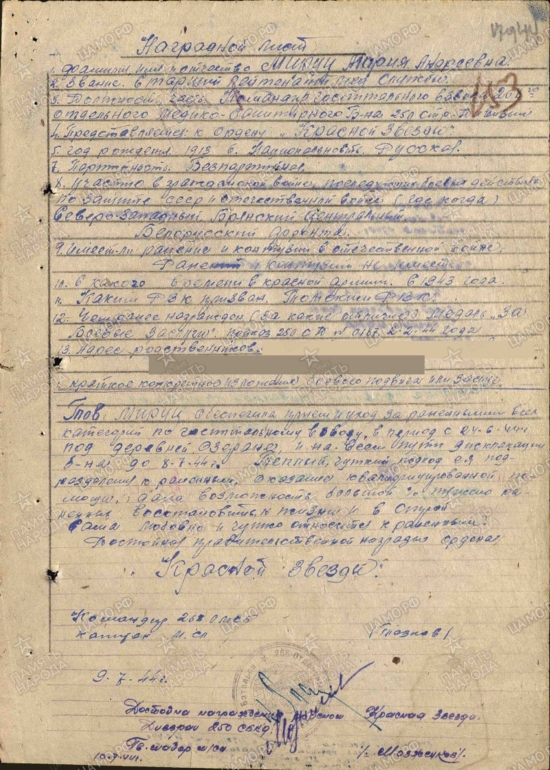 Наградной лист
1. Фамилия имя отчество Мирич Мария Алексеевна.
2. Звание старший лейтенант мед службы.
3. Должность, часть Командир госпитального взвода
отдельного медико-санитарного б-на 250 стр.
4. Представляется к ордену "Красной Звезды"
5. год рождения 1918 6. Национальность Русская.
7. Партийность Безпартийная.
8. Участие в гражданской войне, последующих боевых действиях
по защите СССР и отечественной войне (где когда)
Северо-Западный Брянский Центральный
Белорусский фронты.
9. имеет ли ранение и контузии в отечественной войне
Ранений и контузий не имеет
10. с какого времени в красной армии. с 1943 года.
11. Каким РВК призван. Томским
12. Чем ранее награжден (за какие отличия) Медаль "За
Боевые Заслуги" приказ 250 СД №
13. Адрес родственников.
1. краткое конкретное изложение боевого подвига или заслуг.
Тов Мирич обеспечила прием и уход за раненными всех
категорий по госпитальному взводу, в период с 24.6.44г
под деревней Озераны, и на всем пути дислокации
б-на до 8-7-44г. Теплый, чуткий подход
к раненным, оказание квалифицированной по
мощи, дала возможность большой тяжело ра
ненных восстановить к жизни и в строй
Сама любовно и чутко относится к раненным.
Достойна правительственной награды ордена
"Красной Звезды".
Командир 268 ОМСБ
капитан м.сл
9.7.44г.
Достойна награждения орденом Красная Звезда.
Дивврач 250
10.7.44г.